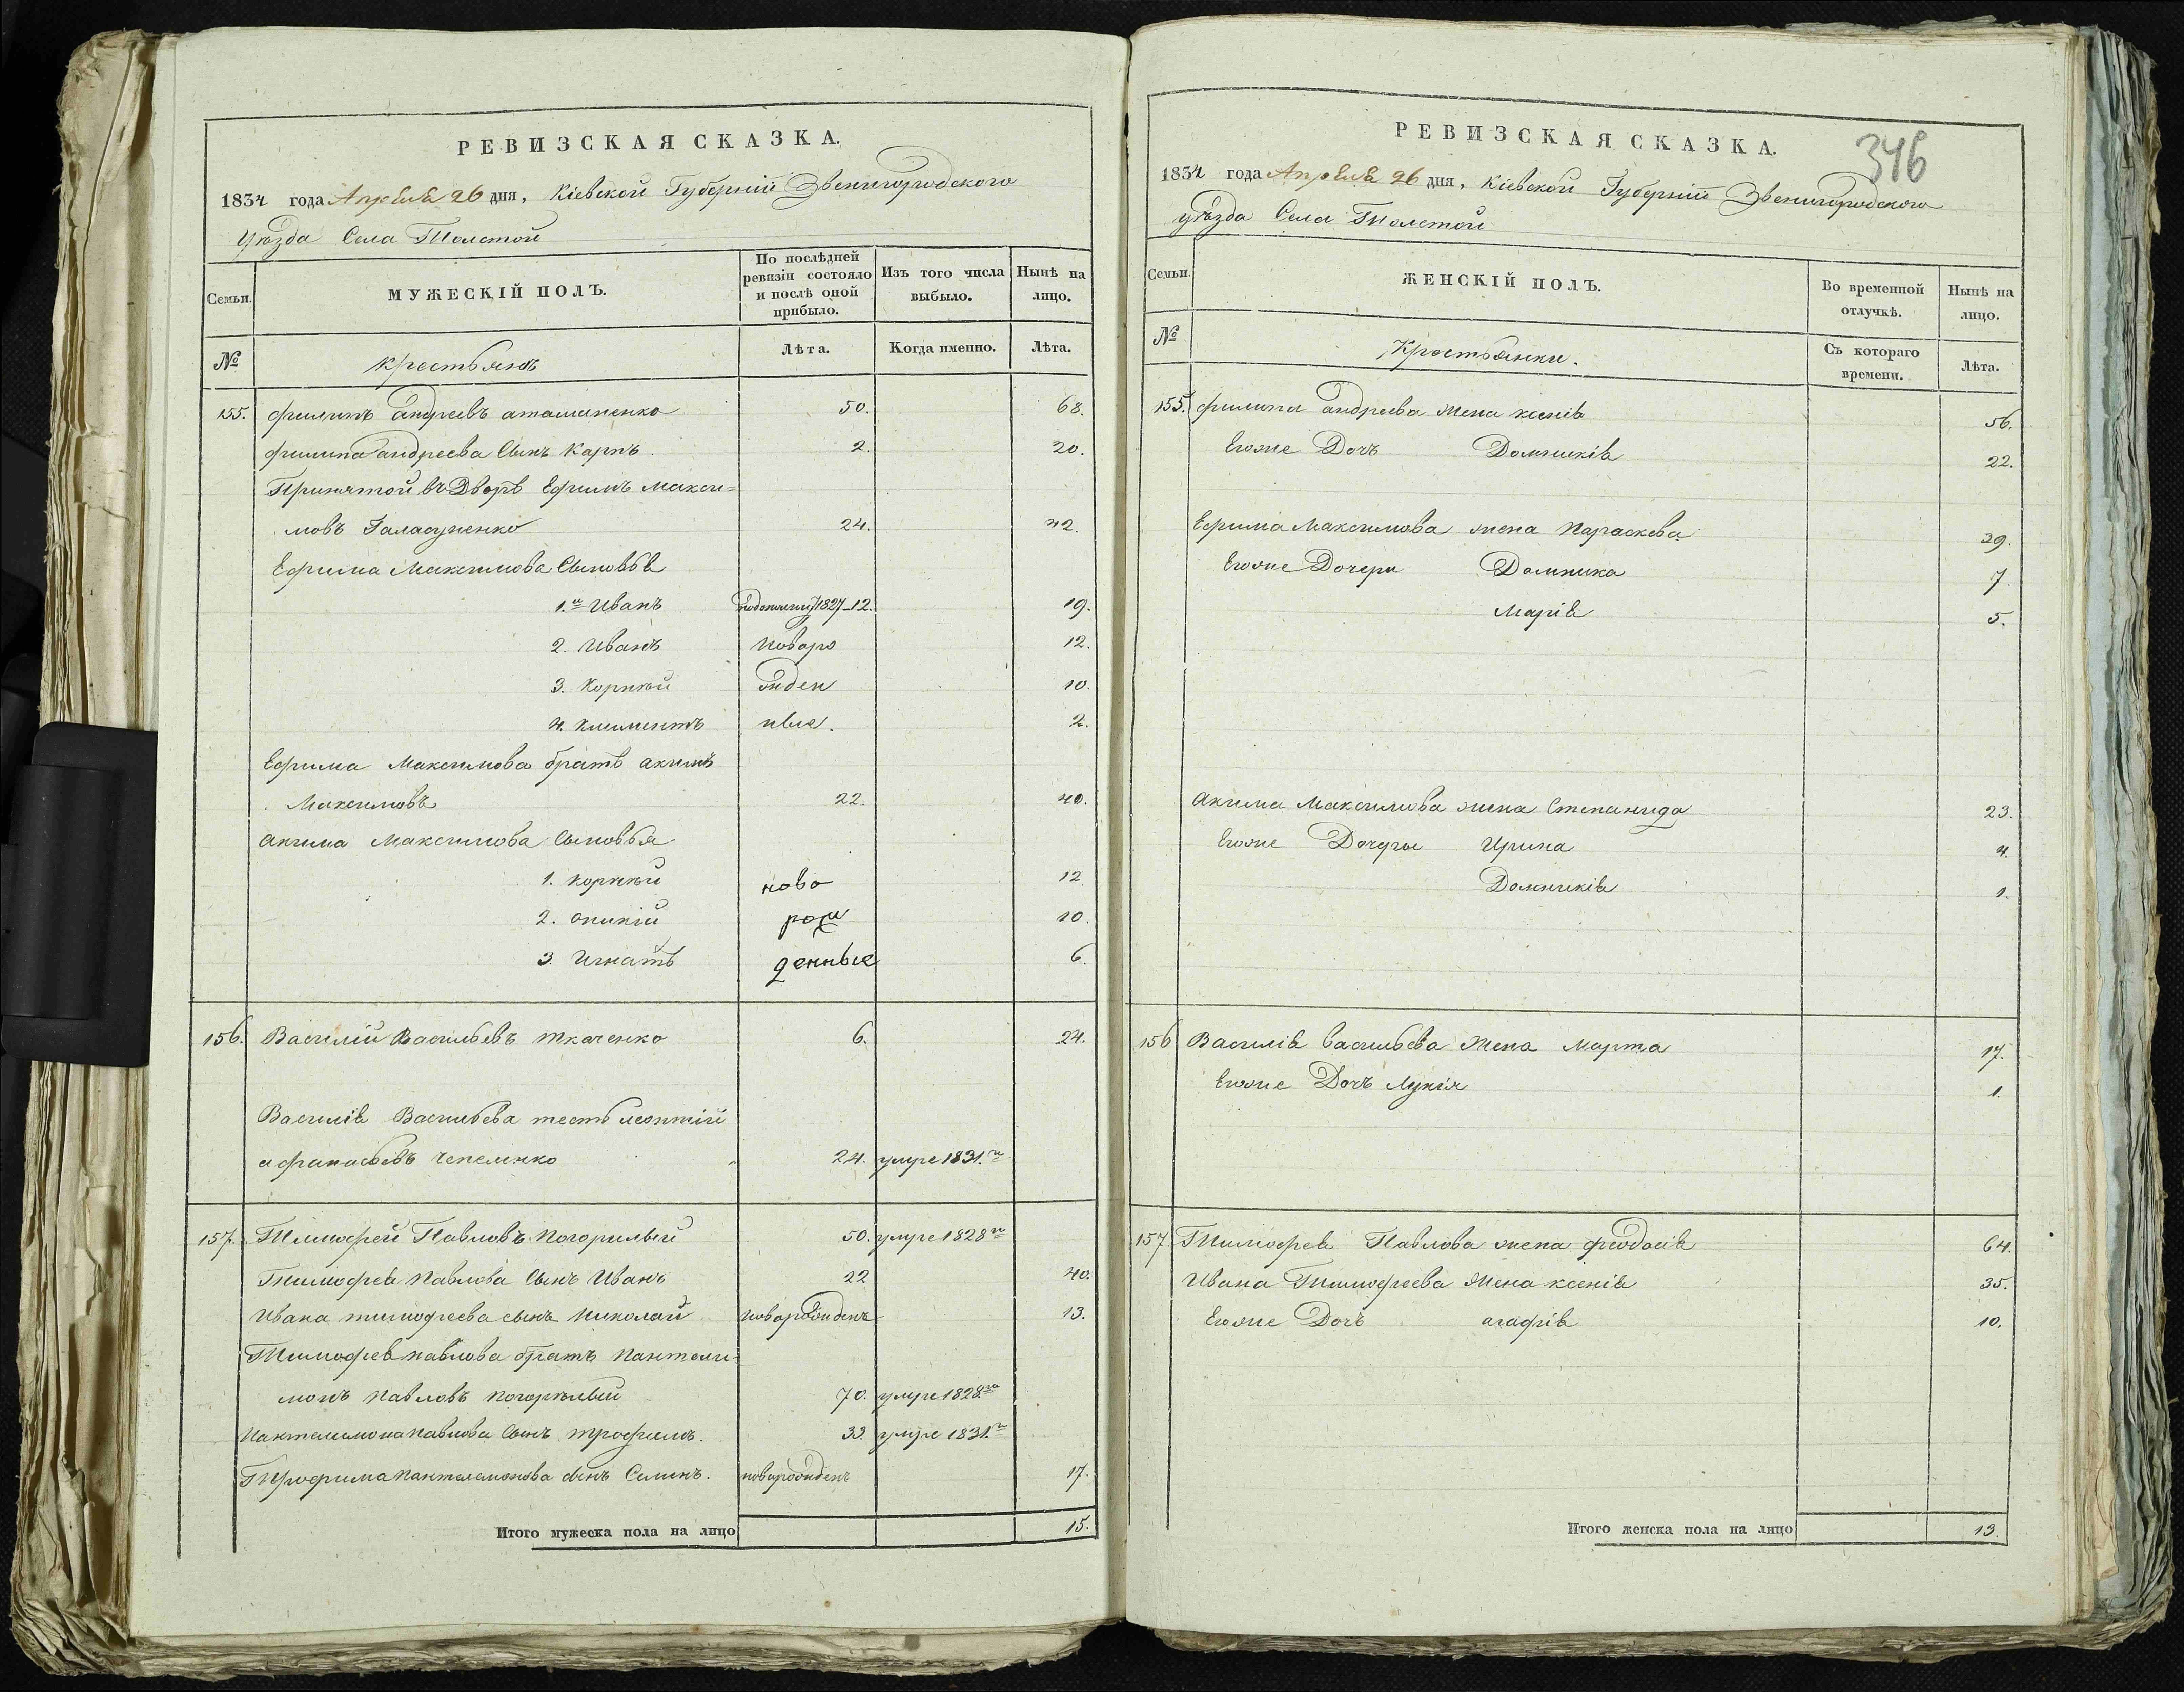 РЕВИЗСКАЯ СКАЗКА.
1834 года Апреля 26 дня, Кіевской Губерніи Звенигородского
Уѣзда Села Толстой
Семьи.
МУЖЕСКІЙ ПОЛЪ.
По послѣдней ревизіи состояло и послѣ оной прибыло.
Изъ того числа выбыло.
Нынѣ на лицо.
№
крестьянъ
Лѣта.
Когда именно.
Лѣта.
155. филипъ андреевъ атаманенко 50. 68.
филипа андреева Сынъ Карпъ 2. 20.
Принятой въ Дворѣ Ефимъ Макси=
мовъ Галагуненко 24. 42.
Ефима Максимова Сыновья
1.й Иванъ 1827 12. 19.
2. Иванъ новоро 12.
3. Корнѣй жден 10.
4. климентъ ные. 2.
Ефима Максимова братъ акимъ
Максимовъ 22. 40.
акима Максимова Сыновья
1. корнѣй ново 12
2. оникій рож 10.
3. Игнатъ денные 6.
156. Василій Васильевъ ткаченко 6. 24.
Василія Васильева тесть леонтій
афанасьевъ чепеленко 24. умре 1831.го
157. Тимофей Павловъ погорилый 50. умре 1828го
Тимофея павлова Сынъ Иванъ 22 40.
Ивана тимофеева сынъ Николай новорожденъ 13.
Тимофея павлова братъ Пантели=
монъ павловъ погорѣлый 70. умре 1828го
Пантелимона павлова Сынъ трофимъ. 33. умре 1831.го
Трофима пантелемонова сынъ Семенъ. новорожденъ 17.
Итого мужеска пола на лицо 15.
РЕВИЗСКАЯ СКАЗКА.
346
1834 года Апреля 26 дня, Кіевской Губерніи Звенигородского
уѣзда Села Толстой
Семьи.
ЖЕНСКІЙ ПОЛЪ.
Во временной отлучкѣ.
Нынѣ на лицо.
№
Крестьянки.
Съ котораго времени.
Лѣта.
155. филипа андреева жена ксенія 56.
Егоже Дочь Домникія 22.
Ефима Максимова жена Параскева 29.
Егоже Дочери Домника 7.
Марія 5.
акима Максимова жена Степанида 23.
Егоже Дочеры Ирина 4.
Домникія 1.
156 Василія Васильева жена Марта 17.
Егоже Дочь Лукія 1.
157 Тимофея Павлова жена феодосія 64.
Ивана Тимофеева жена ксенія 35.
Егоже Дочь агафія 10.
Итого женска пола на лицо 13.